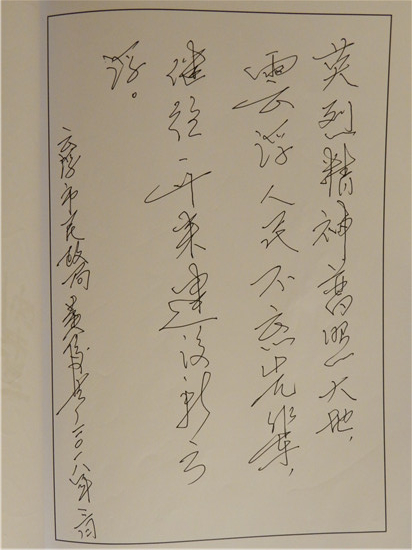 英烈精神普照大地,
雲浮人民不忘先輩,
继往开来建设新云
浮。
云浮市民政局 二〇一八年三月